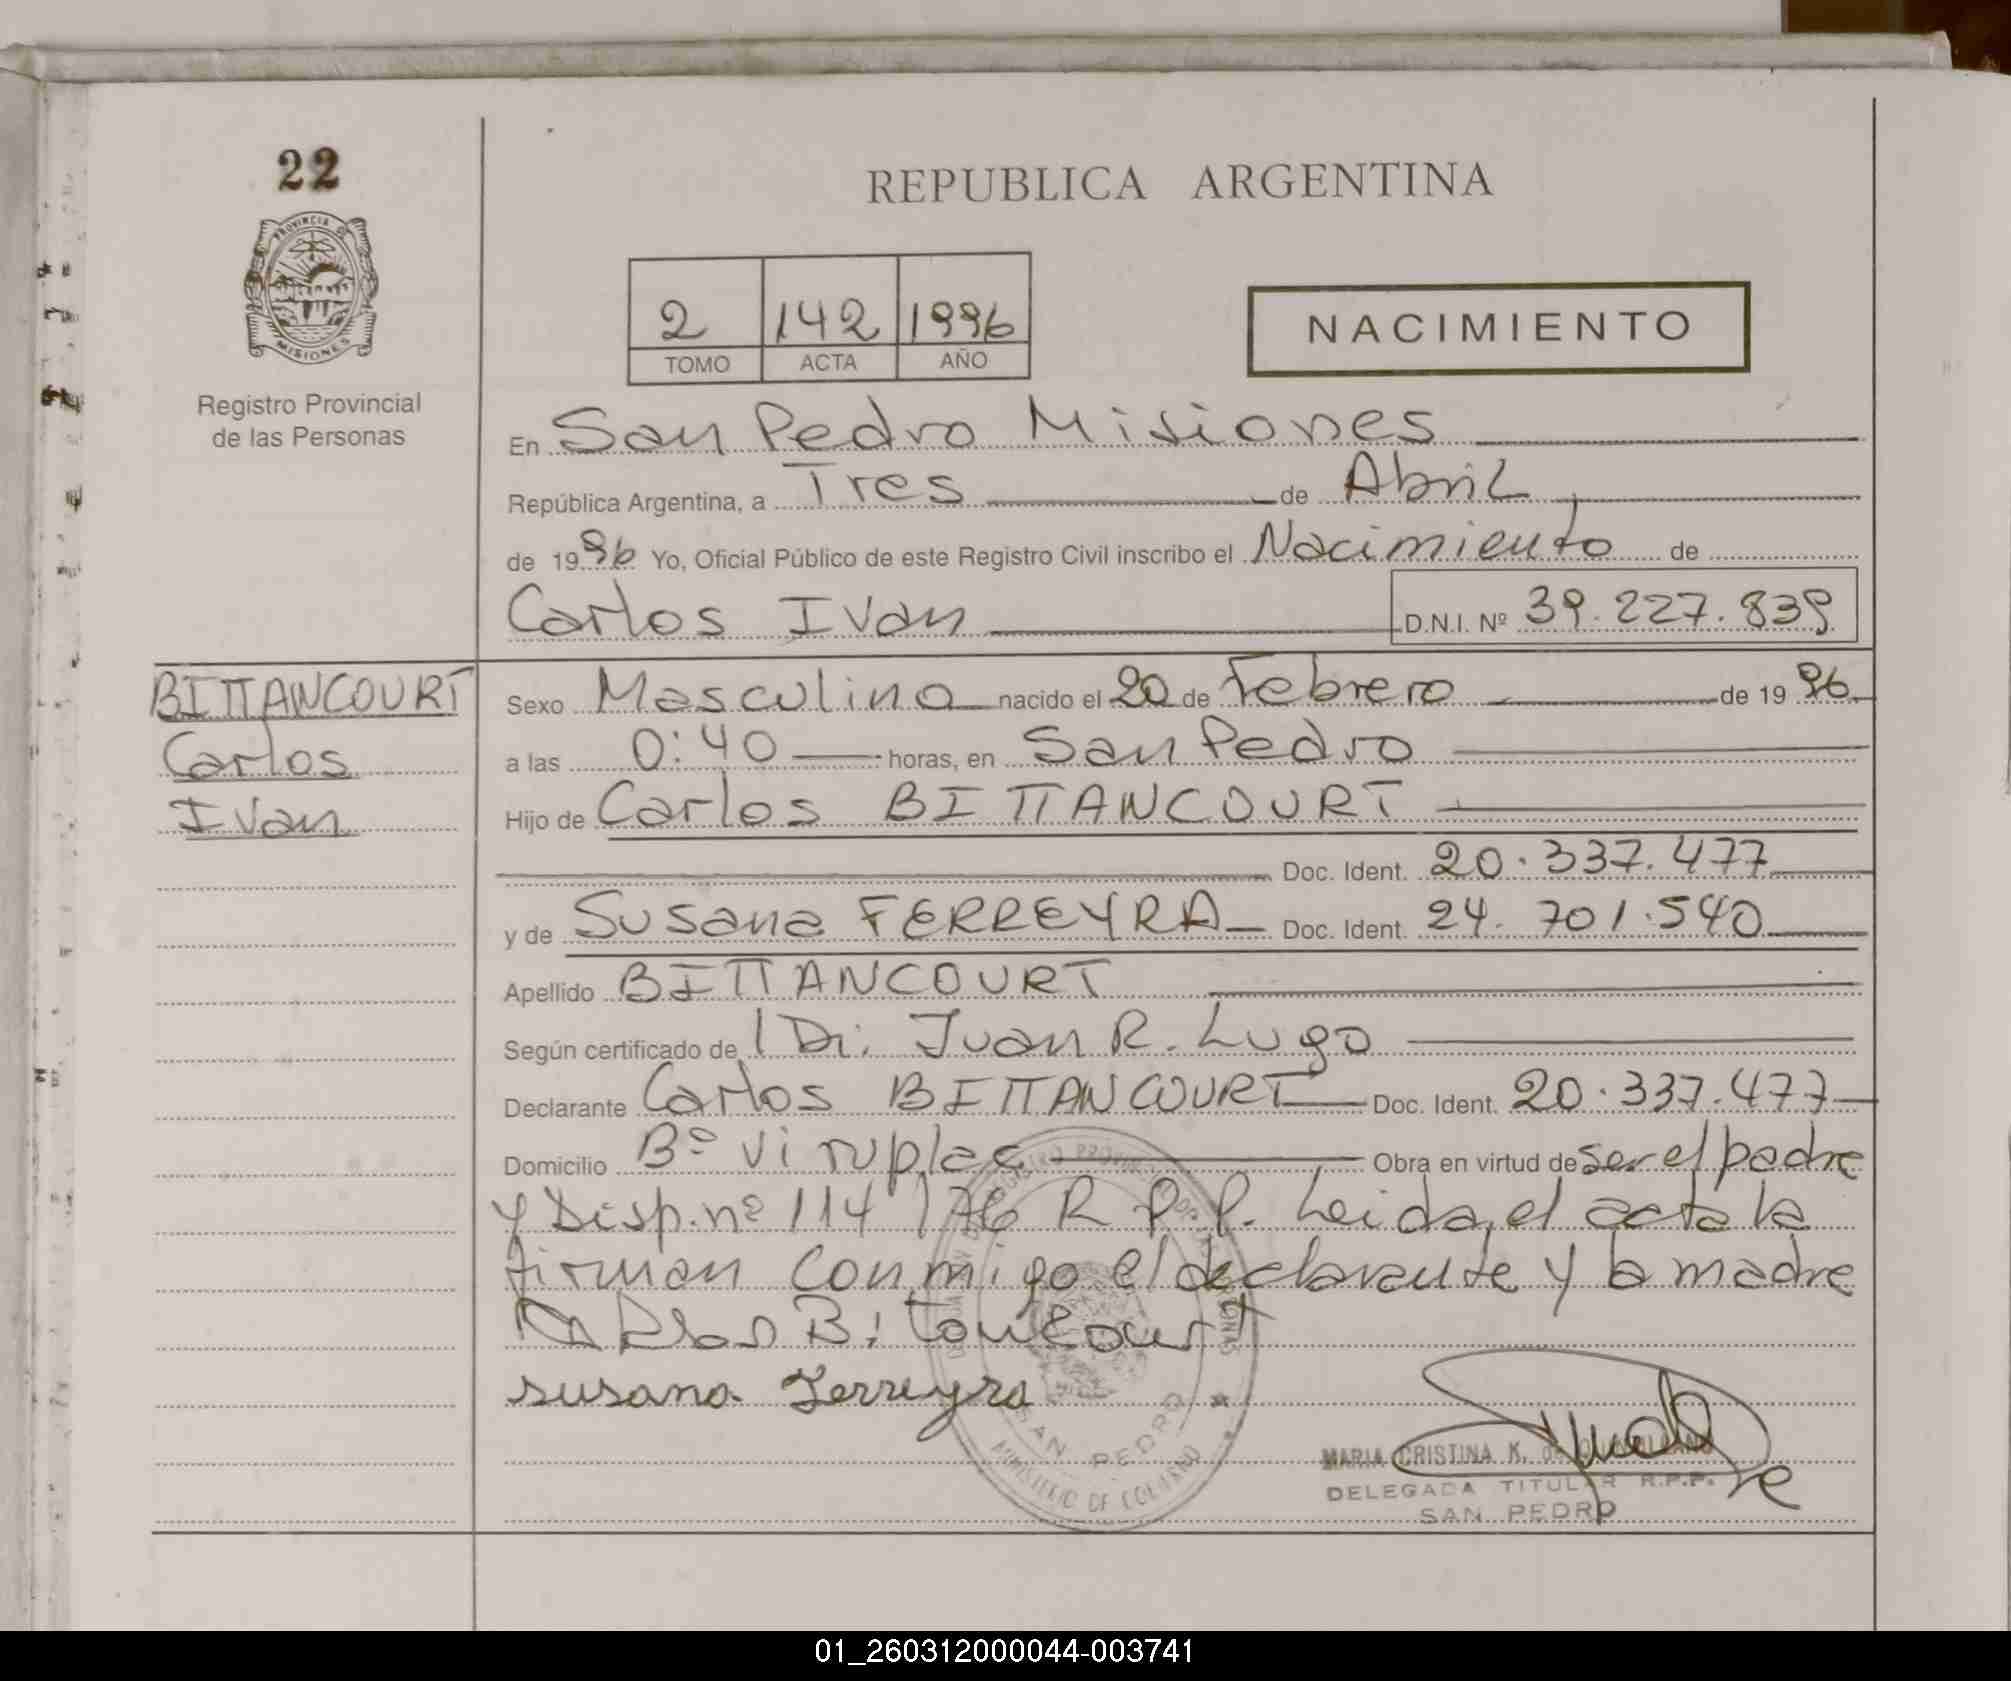 22
REPUBLICA ARGENTINA
PROVINCIA DE
MISIONES
Registro Provincial
de las Personas
2 142 1996
TOMO ACTA AÑO
NACIMIENTO
En San Pedro Misiones
República Argentina, a Tres de Abril
de 1996 Yo, Oficial Público de este Registro Civil inscribo el Nacimiento de
Carlos Ivan D.N.I. Nº 39.227.839
BITTANCOURT
Carlos
Ivan
Sexo Masculino nacido el 20 de Febrero de 1996
a las 0:40 horas, en San Pedro
Hijo de Carlos BITTANCOURT
Doc. Ident. 20.337.477
y de Susana FERREYRA Doc. Ident. 24.701.540
Apellido BITTANCOURT
Según certificado de Dr. Juan R. Lugo
Declarante Carlos BITTANCOURT Doc. Ident. 20.337.477
Domicilio Bº Viruplac Obra en virtud de ser el padre
y Disp. nº 114/76 R.P.P. Leida el acta la
firman conmigo el declarante y la madre
Carlos Bitancourt
susana Ferreyra
SAN PEDRO
MINISTERIO DE GOBIERNO
MARIA CRISTINA K. de
DELEGADA TITULAR R.P.P.
SAN PEDRO
01_260312000044-003741